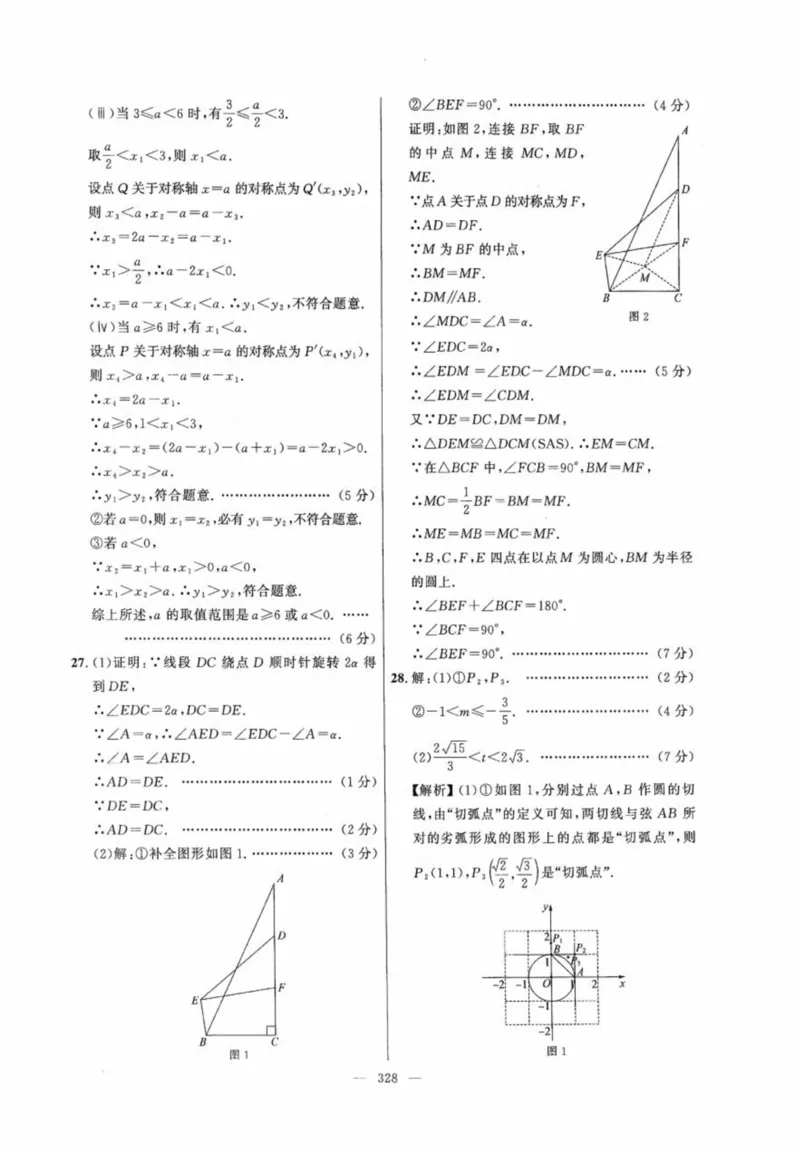 (ⅲ)当 3≤a<6 时,有3/2≤a/2<3.
取a/2<x₁<3,则 x₁<a.
设点 Q 关于对称轴 x=a 的对称点为 Q′(x₃,y₂),
则 x₃<a,x₂-a=a-x₃.
∴x₃=2a-x₂=a-x₁.
∵x₁>a/2,∴a-2x₁<0.
∴x₃=a-x₁<x₁<a.∴y₁<y₂,不符合题意.
(ⅳ)当 a≥6 时,有 x₁<a.
设点 P 关于对称轴 x=a 的对称点为 P′(x₄,y₁),
则 x₄>a,x₄-a=a-x₁.
∴x₄=2a-x₁.
∵a≥6,1<x₁<3,
∴x₄-x₂=(2a-x₁)-(a+x₁)=a-2x₁>0.
∴x₄>x₂>a.
∴y₁>y₂,符合题意. …………………… (5 分)
②若 a=0,则 x₁=x₂,必有 y₁=y₂,不符合题意.
③若 a<0,
∵x₂=x₁+a,x₁>0,a<0,
∴x₁>x₂>a.∴y₁>y₂,符合题意.
综上所述,a 的取值范围是 a≥6 或 a<0. ……
………………………………………… (6 分)
27.(1)证明:∵线段 DC 绕点 D 顺时针旋转 2α 得
到 DE,
∴∠EDC=2α,DC=DE.
∵∠A=α,∴∠AED=∠EDC-∠A=α.
∴∠A=∠AED.
∴AD=DE. …………………………… (1 分)
∵DE=DC,
∴AD=DC. …………………………… (2 分)
(2)解:①补全图形如图 1. ……………… (3 分)
A
D
F
E
B
C
图 1
②∠BEF=90°. ………………………… (4 分)
证明:如图 2,连接 BF,取 BF
的中点 M,连接 MC,MD,
ME.
∵点 A 关于点 D 的对称点为 F,
∴AD=DF.
∵M 为 BF 的中点,
∴BM=MF.
∴DM∥AB.
∴∠MDC=∠A=α.
∵∠EDC=2α,
∴∠EDM=∠EDC-∠MDC=α. …… (5 分)
∴∠EDM=∠CDM.
又∵DE=DC,DM=DM,
∴△DEM≌△DCM(SAS).∴EM=CM.
∵在△BCF 中,∠FCB=90°,BM=MF,
∴MC=1/2BF=BM=MF.
∴ME=MB=MC=MF.
∴B,C,F,E 四点在以点 M 为圆心,BM 为半径
的圆上.
∴∠BEF+∠BCF=180°.
∵∠BCF=90°,
∴∠BEF=90°. ………………………… (7 分)
A
D
F
E
M
B
C
图 2
28.解:(1)①P₂,P₃. ……………………… (2 分)
②-1<m≤-3/5. ……………………… (4 分)
(2)2√15/3<t<2√3. …………………… (7 分)
【解析】(1)①如图 1,分别过点 A,B 作圆的切
线,由“切弧点”的定义可知,两切线与弦 AB 所
对的劣弧形成的图形上的点都是“切弧点”,则
P₂(1,1),P₃(√2/2,√3/2)是“切弧点”.
y
2 P₁
B P₂
1 P₃
A
-2 -1 O 1 2 x
-1
-2
图 1
— 328 —